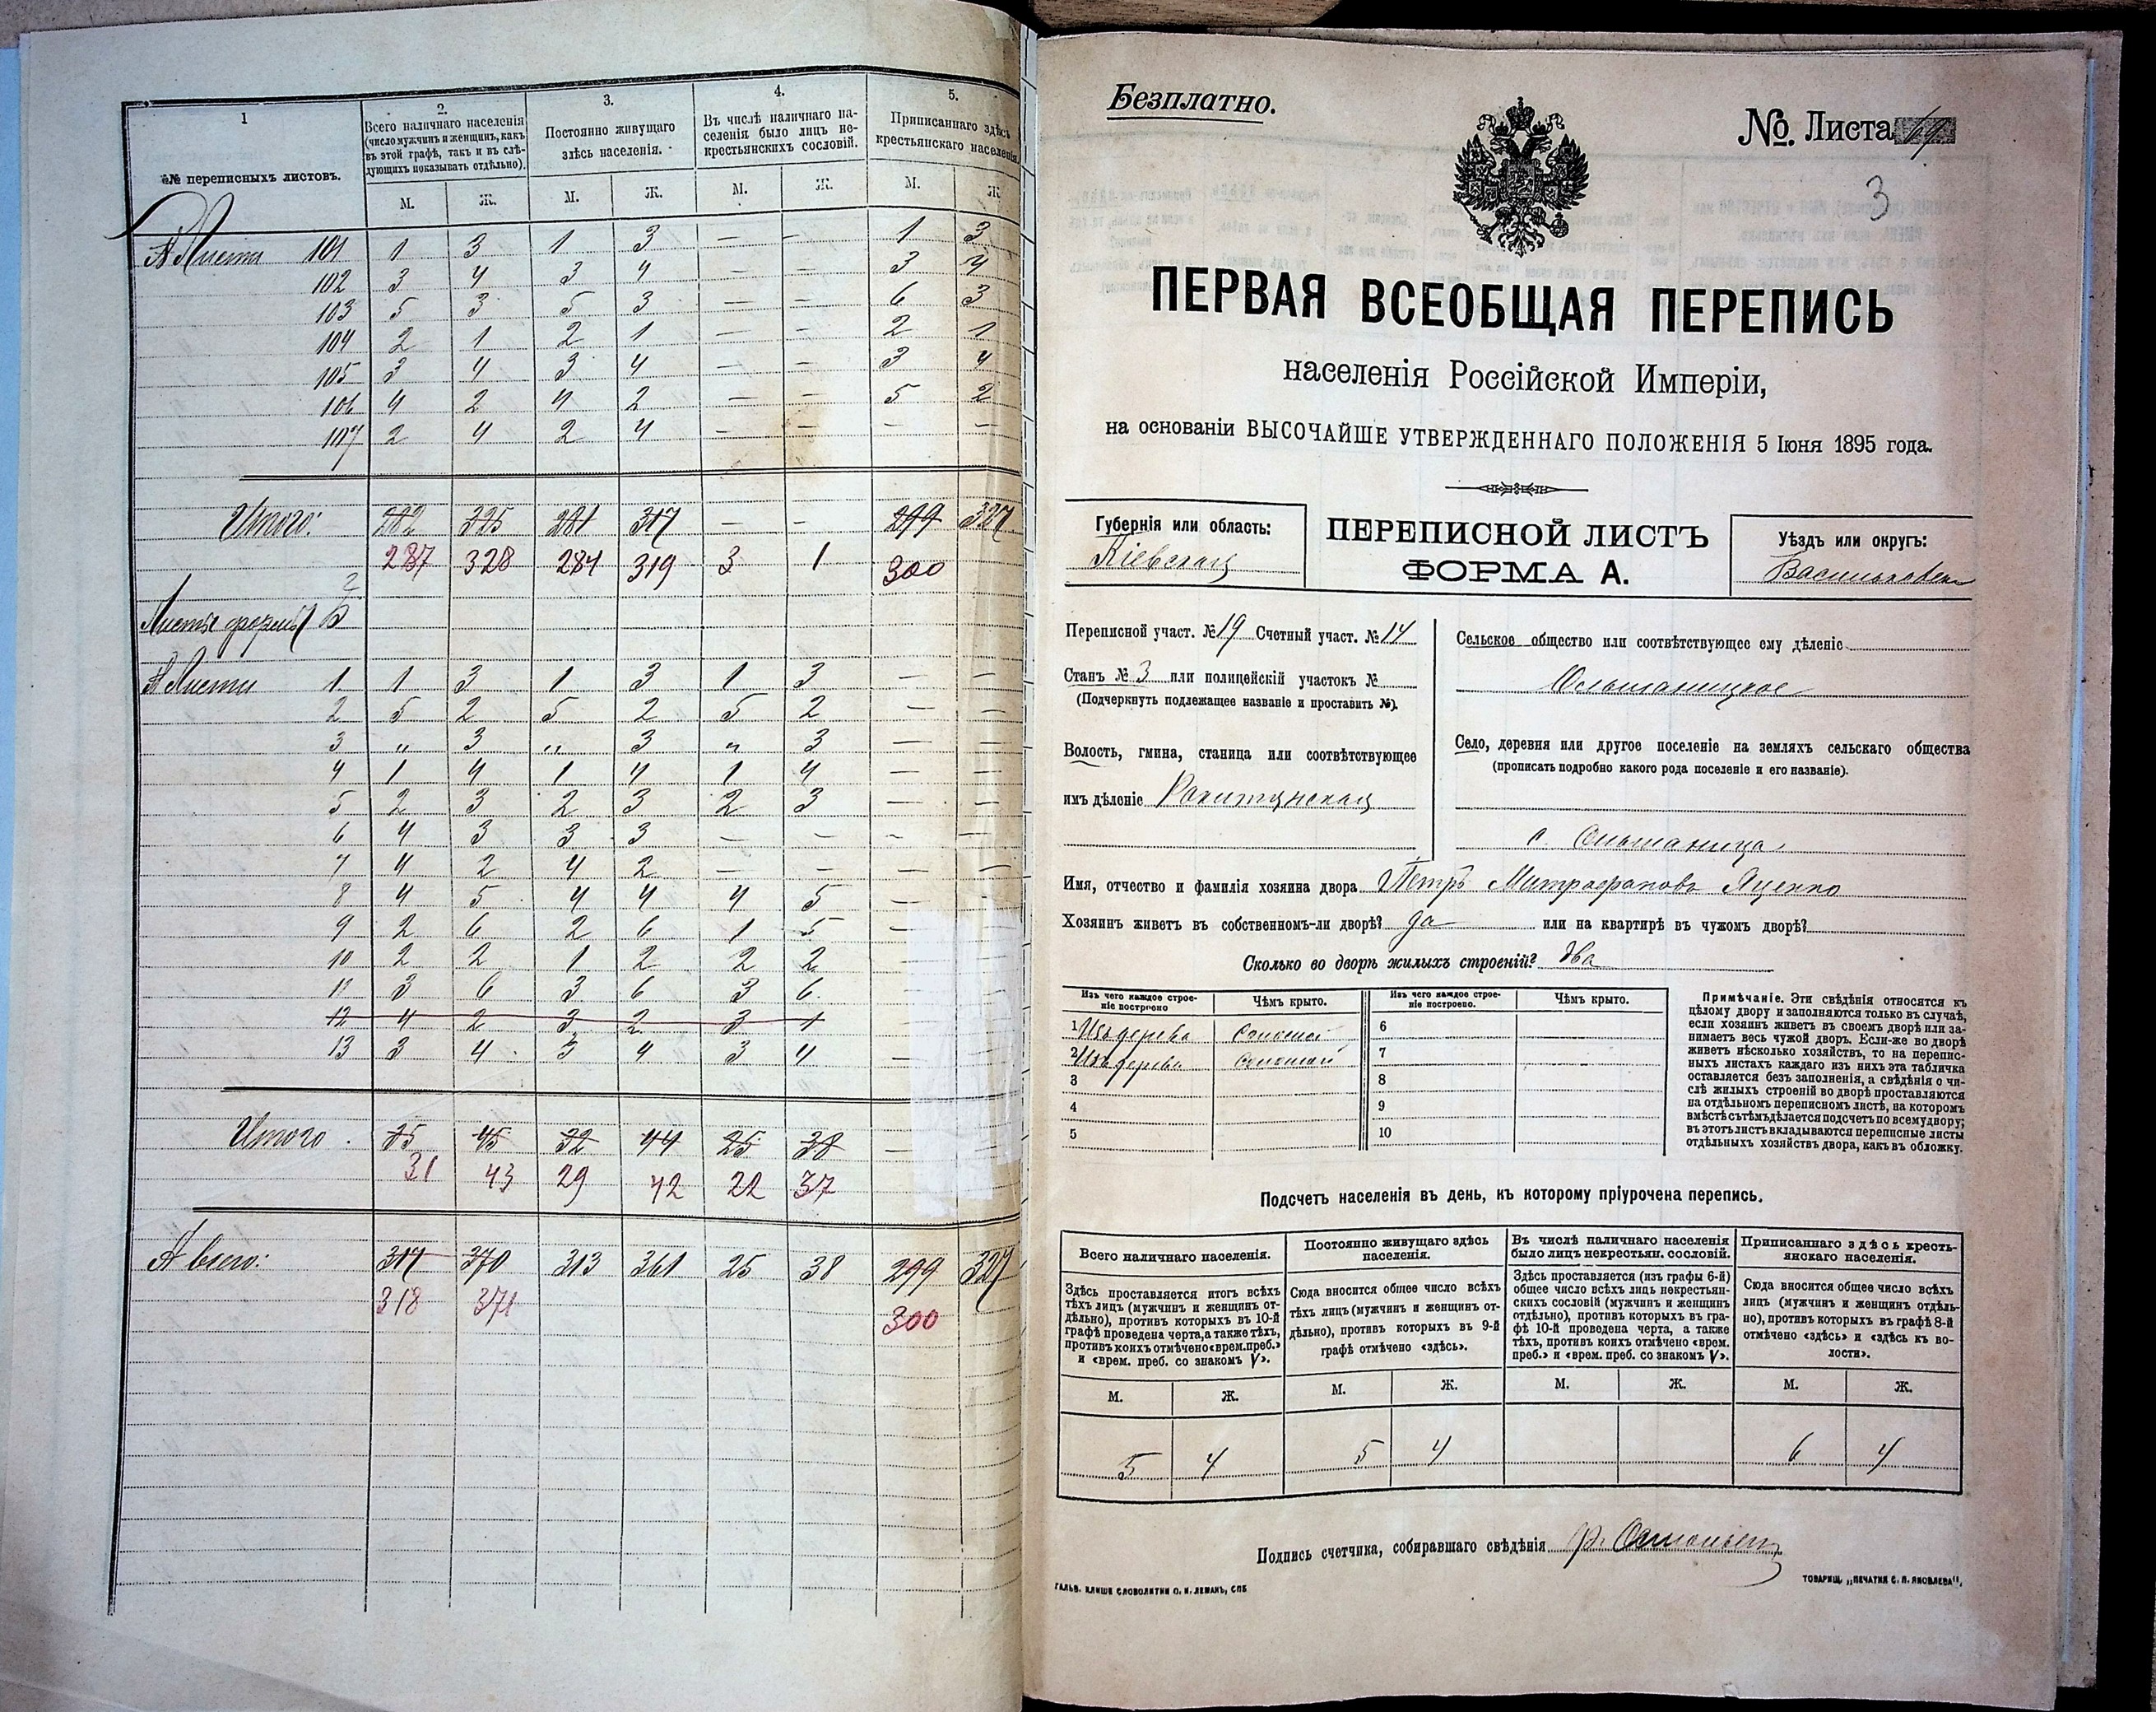 1
2.
3.
4.
5.
№№ переписныхъ листовъ.
Всего наличнаго населенія
(число мужчинъ и женщинъ, какъ
въ этой графѣ, такъ и въ слѣ-
дующихъ показывать отдѣльно).
Постоянно живущаго
здѣсь населенія.
Въ числѣ наличнаго на-
селенія было лицъ не-
крестьянскихъ сословій.
Приписаннаго здѣсь
крестьянскаго населенія.
М. Ж. М. Ж. М. Ж. М. Ж.
№ Листа 101 1 3 1 3 — — 1 3
102 3 4 3 4 — — 3 4
103 5 3 5 3 — — 6 3
104 2 1 2 1 — — 2 1
105 3 4 3 4 — — 3 4
106 4 2 4 2 — — 5 2
107 2 4 2 4 — — — —
Итого: 282 325 281 317 — — 299 327
287 328 284 319 3 1 300
Листы формы Б
№ Листа 1 1 3 1 3 1 3 — —
2 5 2 5 2 5 2 — —
3 „ 3 „ 3 „ 3 — —
4 1 4 1 4 1 4 — —
5 2 3 2 3 2 3 — —
6 4 3 3 3 — — — —
7 4 2 4 2 — — — —
8 4 5 4 4 4 5 —
9 2 6 2 6 1 5 —
10 2 2 1 2 2 2
11 3 6 3 6 3 6
12 4 2 3 2 3 1
13 3 4 3 4 3 4 —
Итого 35 45 32 44 25 38 —
31 43 29 42 22 37
А всего: 317 370 313 361 25 38 299 327
318 371 300
Безплатно.
№ Листа 69
3
ПЕРВАЯ ВСЕОБЩАЯ ПЕРЕПИСЬ
населенія Россійской Имперіи,
на основаніи ВЫСОЧАЙШЕ УТВЕРЖДЕННАГО ПОЛОЖЕНІЯ 5 Іюня 1895 года.
Губернія или область:
Кіевская
ПЕРЕПИСНОЙ ЛИСТЪ
ФОРМА А.
Уѣздъ или округъ:
Васильковск
Переписной участ. № 19 Счетный участ. № 14
Станъ № 3 или полицейскій участокъ №
(Подчеркнуть подлежащее названіе и проставить №).
Волость, гмина, станица или соотвѣтствующее
имъ дѣленіе Рокитянская
Сельское общество или соотвѣтствующее ему дѣленіе
Ольшаницкое
Село, деревня или другое поселеніе на земляхъ сельскаго общества
(прописать подробно какого рода поселеніе и его названіе).
с. Ольшаница
Имя, отчество и фамилія хозяина двора Петръ Митрофановъ Яценко
Хозяинъ живетъ въ собственномъ-ли дворѣ? да или на квартирѣ въ чужомъ дворѣ?
Сколько во дворѣ жилыхъ строеній? два
Изъ чего каждое строе-
ніе построено
Чѣмъ крыто.
Изъ чего каждое строе-
ніе построено.
Чѣмъ крыто.
1 Изъ дерева Соломой 6
2 Изъ дерева Соломой 7
3 8
4 9
5 10
Примѣчаніе. Эти свѣдѣнія относятся къ
цѣлому двору и заполняются только въ случаѣ,
если хозяинъ живетъ въ своемъ дворѣ или за-
нимаетъ весь чужой дворъ. Если-же во дворѣ
живетъ нѣсколько хозяйствъ, то на перепис-
ныхъ листахъ каждаго изъ нихъ эта табличка
оставляется безъ заполненія, а свѣдѣнія о чи-
слѣ жилыхъ строеній во дворѣ проставляются
на отдѣльномъ переписномъ листѣ, на которомъ
вмѣстѣ съ тѣмъ дѣлается подсчетъ по всему двору;
въ этотъ листъ вкладываются переписные листы
отдѣльныхъ хозяйствъ двора, какъ въ обложку.
Подсчетъ населенія въ день, къ которому пріурочена перепись.
Всего наличнаго населенія.
Постоянно живущаго здѣсь
населенія.
Въ числѣ наличнаго населенія
было лицъ некрестьян. сословій.
Приписаннаго здѣсь кресть-
янскаго населенія.
Здѣсь проставляется итогъ всѣхъ
тѣхъ лицъ (мужчинъ и женщинъ от-
дѣльно), противъ которыхъ въ 10-й
графѣ проведена черта, а также тѣхъ,
противъ коихъ отмѣчено «врем. преб.»
и «врем. преб. со знакомъ V».
Сюда вносится общее число всѣхъ
тѣхъ лицъ (мужчинъ и женщинъ от-
дѣльно), противъ которыхъ въ 9-й
графѣ отмѣчено «здѣсь».
Здѣсь проставляется (изъ графы 6-й)
общее число всѣхъ лицъ некрестьян-
скихъ сословій (мужчинъ и женщинъ
отдѣльно), противъ которыхъ въ гра-
фѣ 10-й проведена черта, а также
тѣхъ, противъ коихъ отмѣчено «врем.
преб.» и «врем. преб. со знакомъ V».
Сюда вносится общее число всѣхъ
лицъ (мужчинъ и женщинъ отдѣль-
но), противъ которыхъ въ графѣ 8-й
отмѣчено «здѣсь» и «здѣсь къ во-
лости».
М. Ж. М. Ж. М. Ж. М. Ж.
5 4 5 4 6 4
Подпись счетчика, собиравшаго свѣдѣнія
ГАЛЬВ. КЛИШЕ СЛОВОЛИТНИ О. И. ЛЕМАНЪ, СПБ
ТОВАРИЩ. „ПЕЧАТНЯ С. П. ЯКОВЛЕВА“.